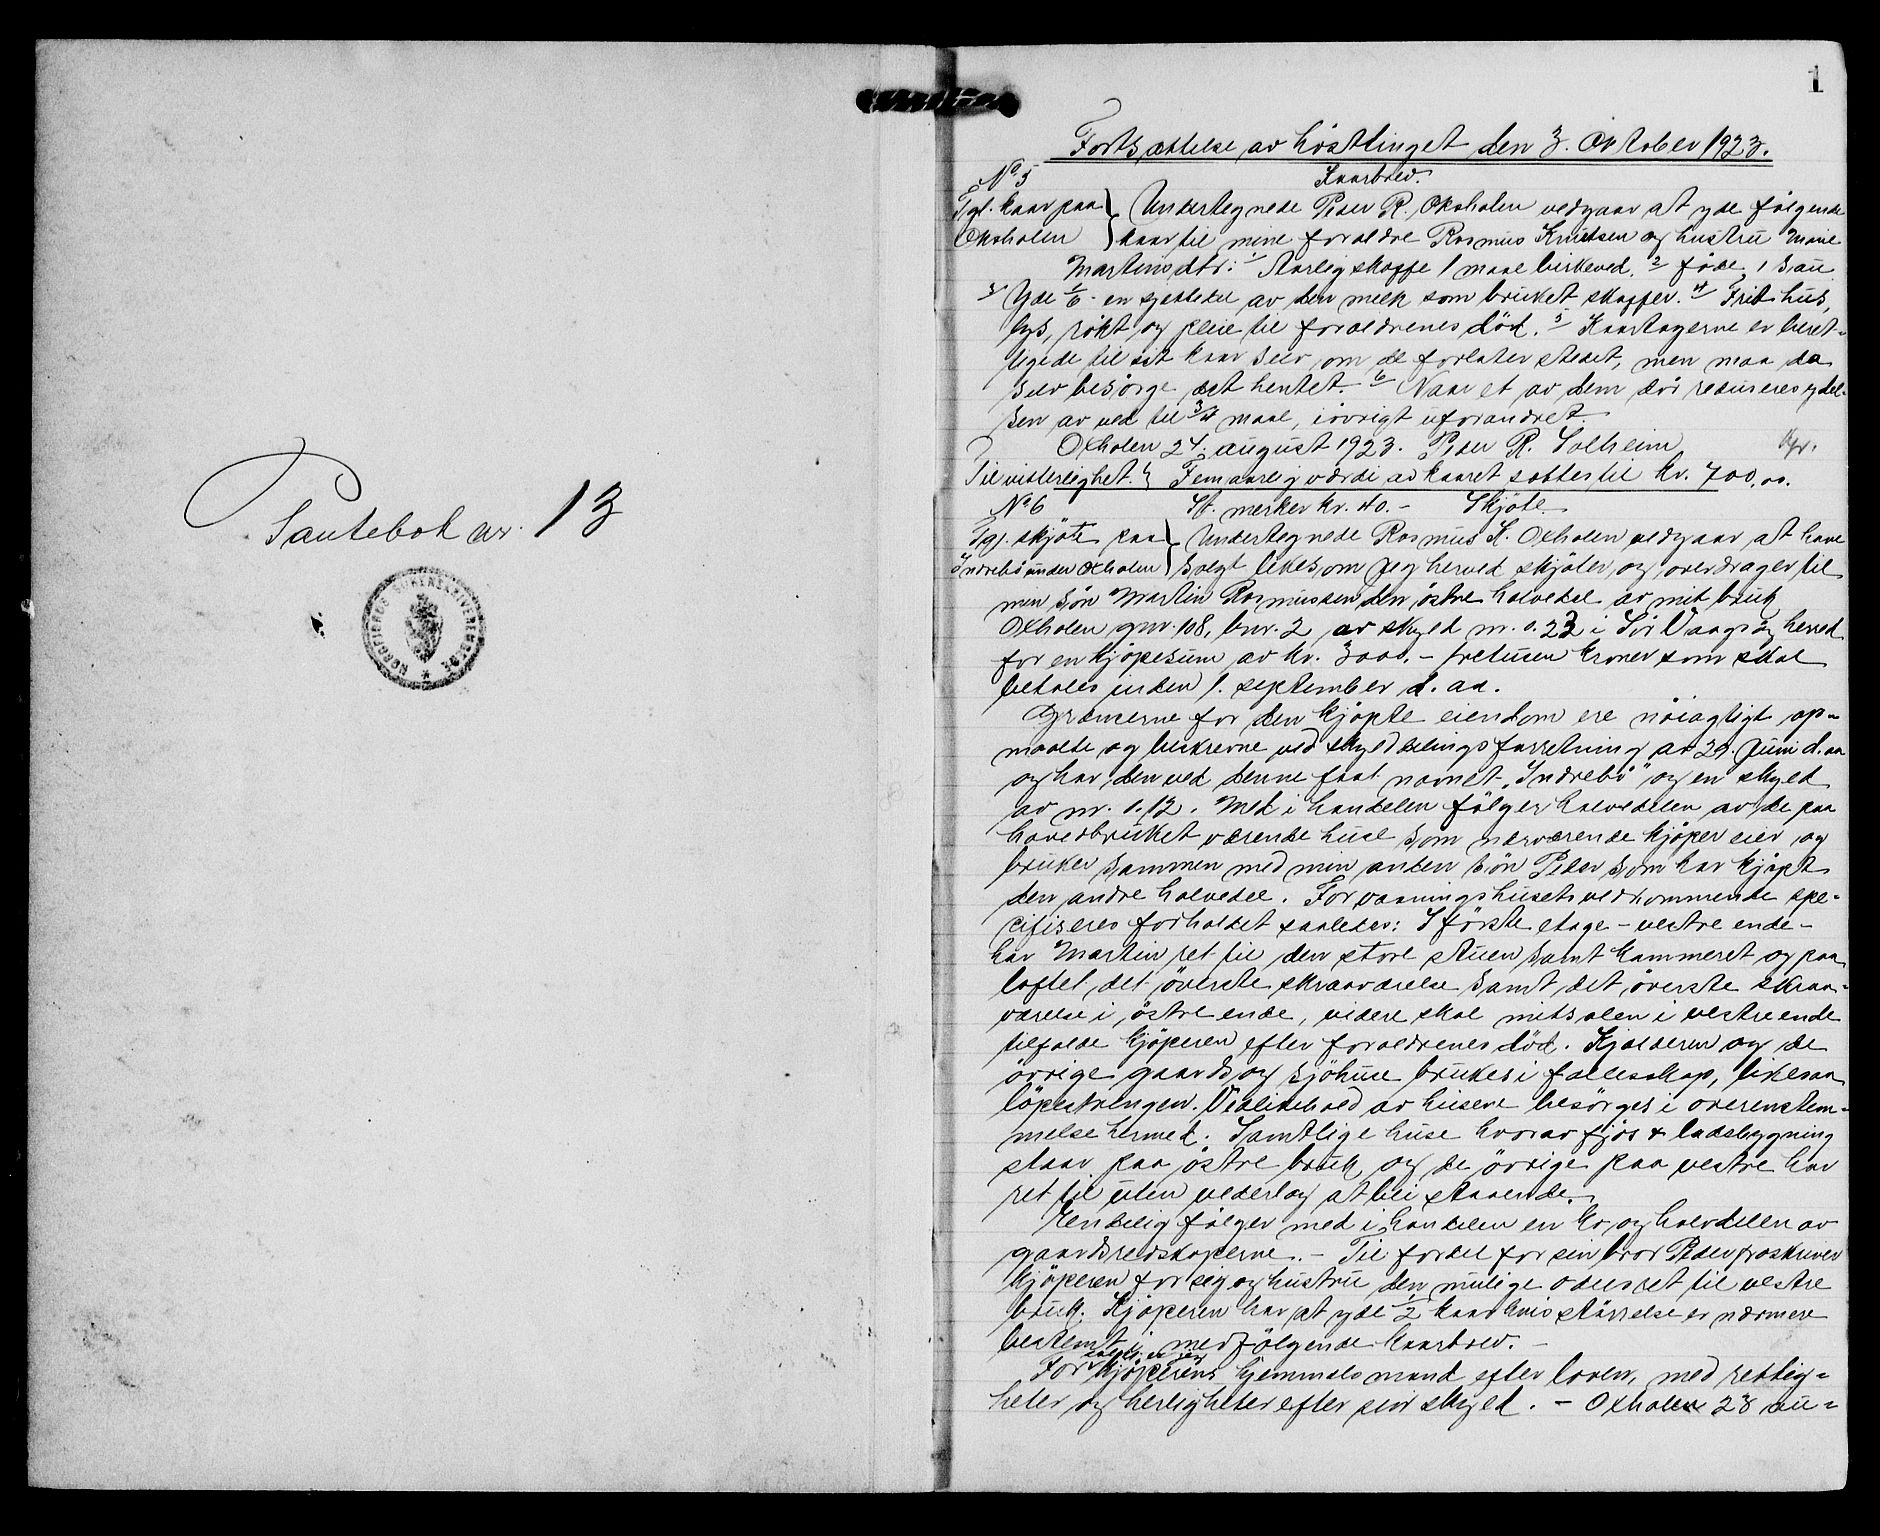 Pantebok nr. 13
NORDFJORDS SORENSKRIVEREMBEDE
1
Fortsættelse av høsttinget den 3. Oktober 1923.
No 5 Kaarbrev.
Tgl. kaar paa Oksholen } Undertegnede Peder R. Oksholen vedgaar at yde følgende
kaar til mine forældre Rasmus Knutsen og hustru Marie
Martinsdtr: 1/ Aarlig skaffe 1 maal birkeved. 2/ føde 1 sau
3/ Yde 1/6 - en sjettedel av den melk som bruket skaffer. 4/ Frit hus,
lys, røkt og pleie til forældrenes död. 5/ Kaartagerne er beret-
tigede til sit kaar selv om de forlater stedet, men maa da
selv besörge det hentet. 6/ Naar et av dem dör reduceres ydel-
sen av ved til 3/4 maal, iövrigt uforandret.
Oxholen 24. august 1923. Peder R. Solheim
Til vitterlighet. Femaarlig værdi av kaaret sættes til kr. 700,00.
No 6 St. merker kr. 40.- Skjöte.
Tgl. skjöte paa Indrebö under Oxholen } Undertegnede Rasmus K. Oxholen vedgaar at have
solgt likesom jeg herved skjöter og overdrager til
min sön Martin Rasmussen den östre halvedel av mit bruk
Oxholen gnr. 108, bnr. 2 av skyld m. 0.23 i Sör Vaagsöy herred
for en kjöpesum av kr. 3000.- tretusen kroner som skal
betales inden 1. september d. aa.
Grænserne for den kjöpte eiendom ere nöiagtigt op-
maalte og beskrevne ved skylddelingsforretning av 29. juni d. aa
og har den ved denne faat navnet "Indrebö" og en skyld
av m. 0.12. Med i handelen fölger halvedelen av de paa
hovedbruket værende huse som nærværende kjöper eier og
bruker sammen med min anden sön Peder som har kjöpt
den andre halvedel. For vaaningshusets vedkommende spe-
cifiseres forholdet saaledes: I förste etage - vestre ende -
har Martin ret til den store stuen samt kammeret og paa
loftet det överste skraaværelse samt det överste skraa-
værelse i östre ende, videre skal midtsalen i vestre ende
tilfalde kjöperen efter forældrenes död. Kjælderen og de
övrige gaards og sjöhuse brukes i fællesskap, likesaa
löpestrengen. Vedlikehold av husene besörges i overenstem-
melse hermed. Samtlige huse hvorav fjös & ladebygning
staar paa östre bruk og de övrige paa vestre har
ret til uten vederlag at bli staaende.
Endelig fölger med i handelen en ko og halvdelen av
gaardsredskaperne. - Til fordel for sin bror Peder fraskriver
kjöperen for sig og hustru den mulige odelsret til vestre
bruk. Kjöperen har at yde 1/2 kaar hvis störrelse er nærmere
bestemt i medfölgende kaarbrev. -
For kjöperens hjemmelsmand efter loven, med rettig-
heter og herligheter efter sin skyld. - Oxholen 28 au-